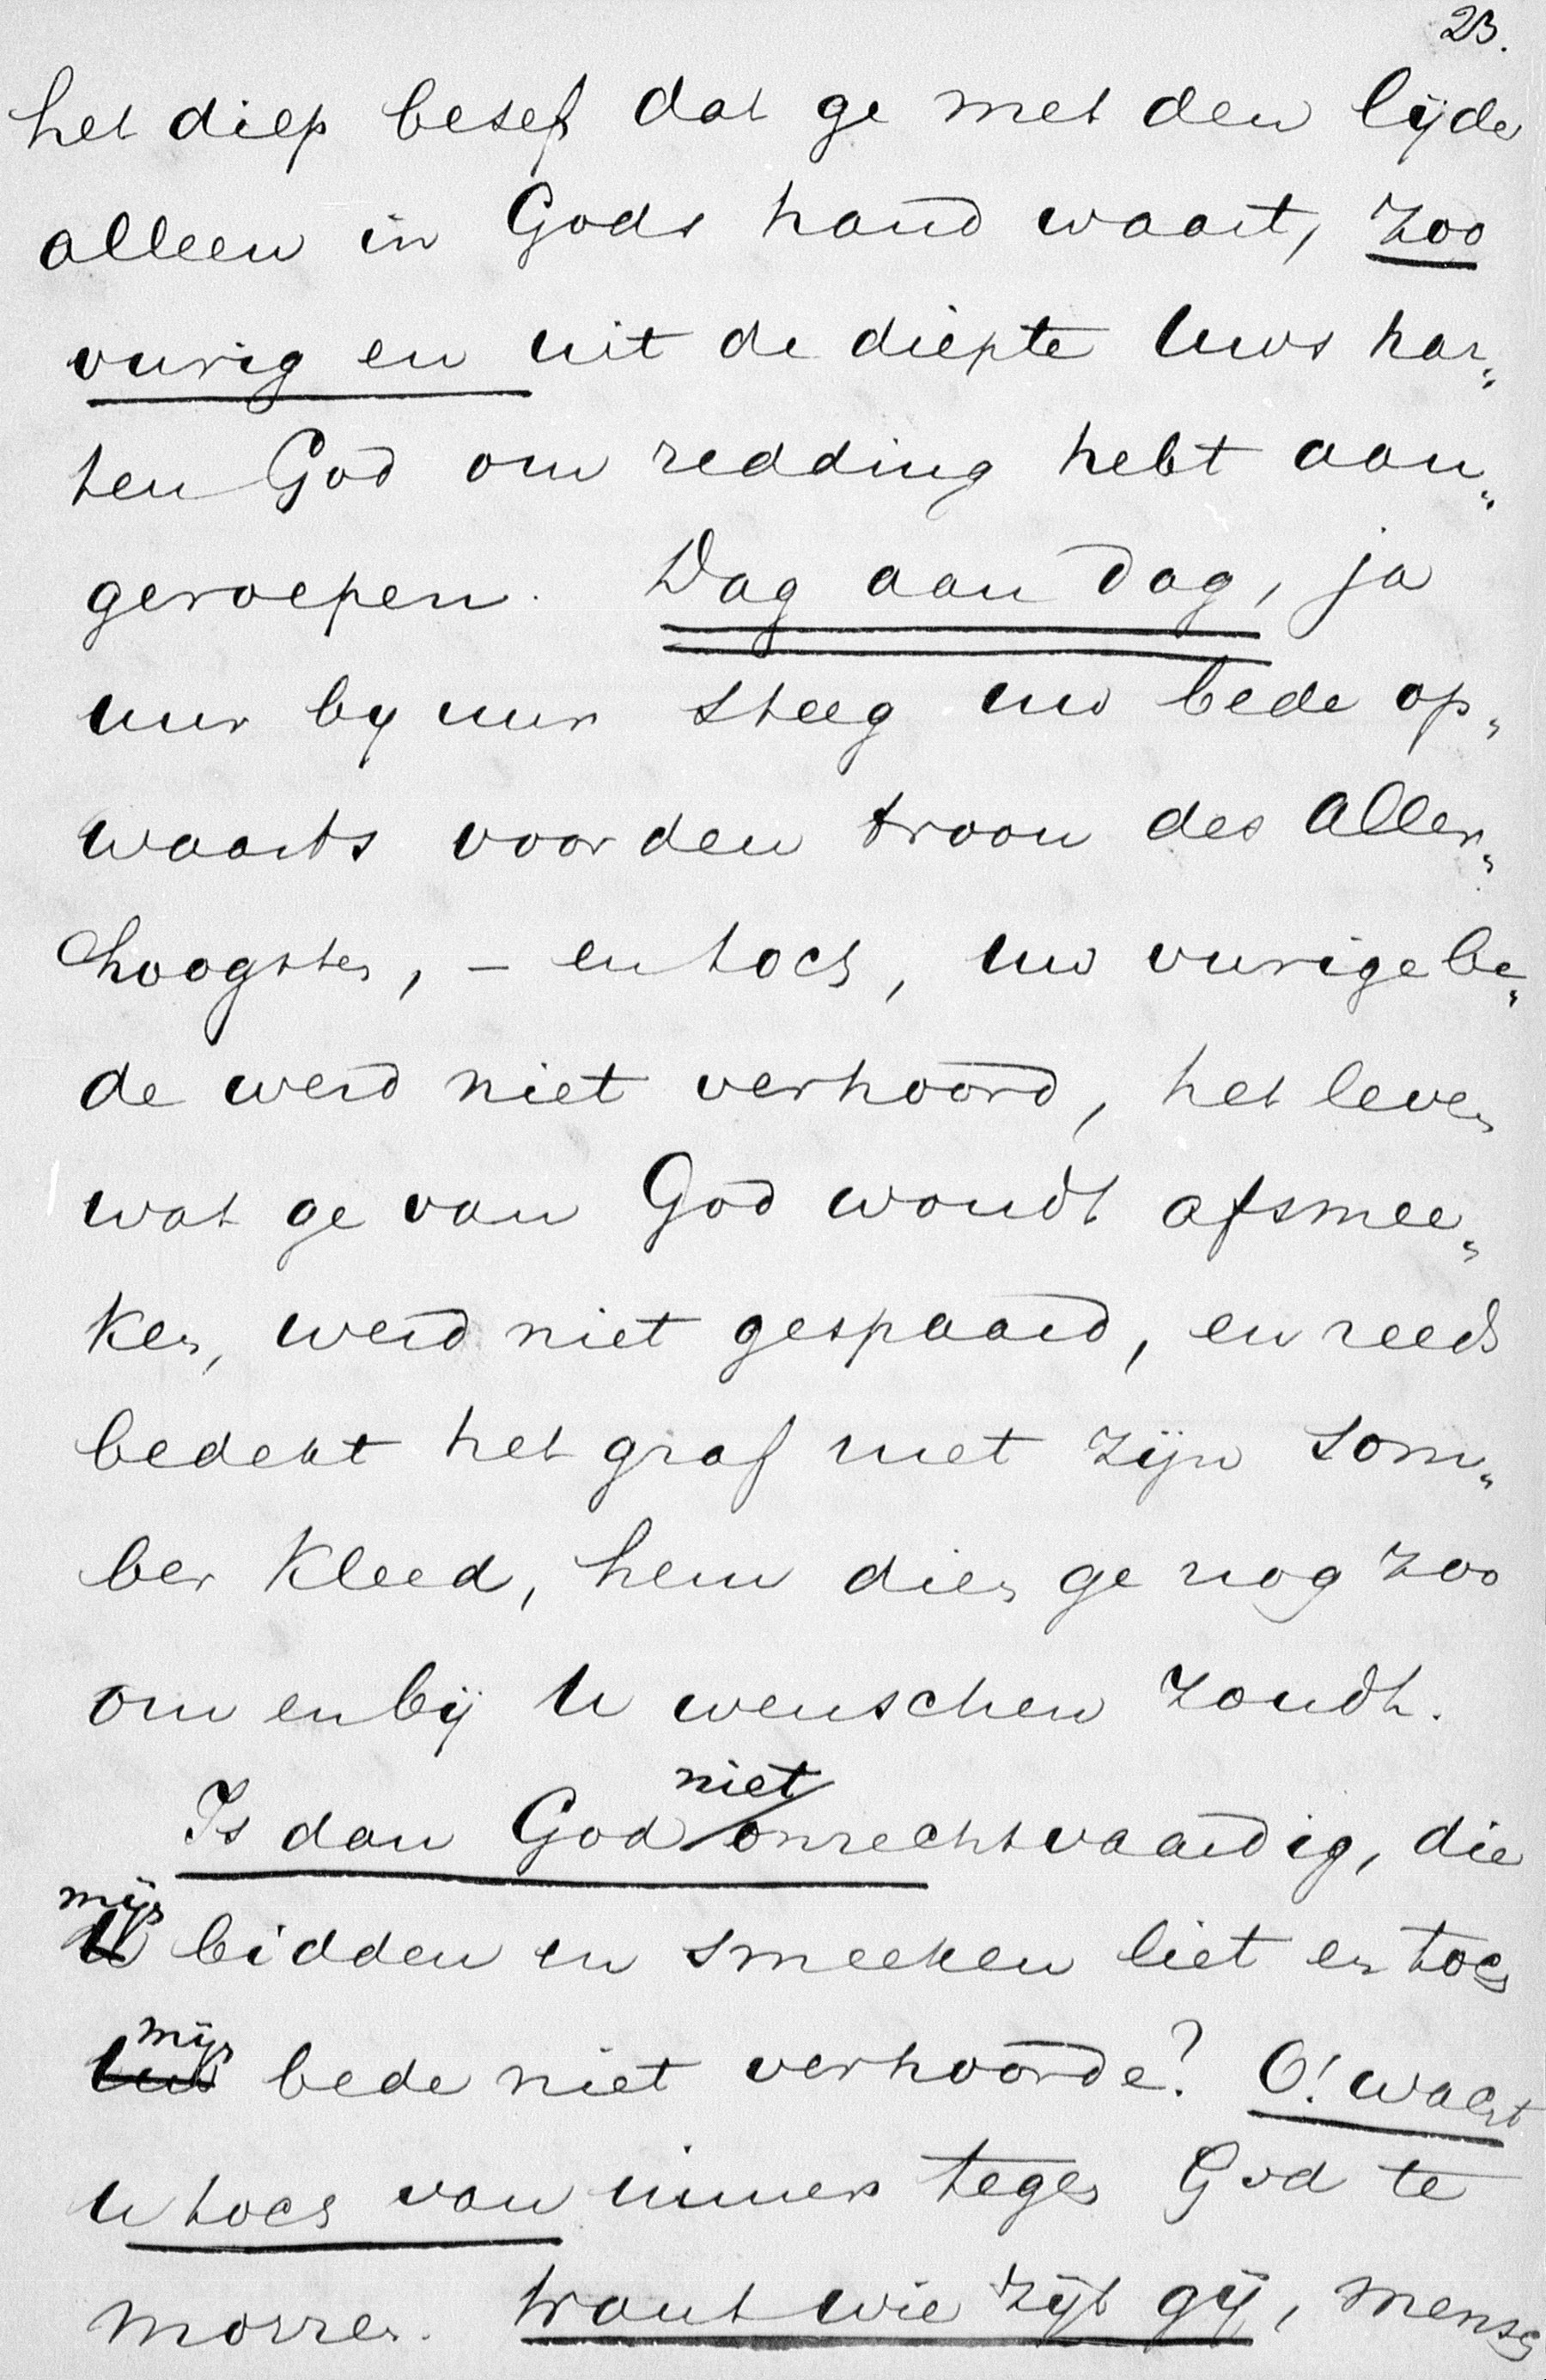 23.
het diep besef dat ge met den lijder
alleen in Gods hand waart, zoo
vurig en uit de diepte Uws har„
ten God om redding hebt aan„
geroepen. Dag aan dag, ja
uur by uur steeg uw bede op„
waarts voor den troon des Aller„
hoogsten, – en toch, uw vurige be„
de werd niet verhoord, het leven
wat ge van God woudt afsmee„
ken, werd niet gespaard, en reeds
bedekt het graf met zijn som„
ber kleed, hem dien ge nog zoo
om en bij U wenschen zoudt.
niet
Is dan God onrechtvaardig, die
mijn
U bidden en smeeken liet en toch
mijn
Uw bede niet verhoorde? O! wacht
U toch van immer tegen God te
morren. Want wie zijt gij, mensch